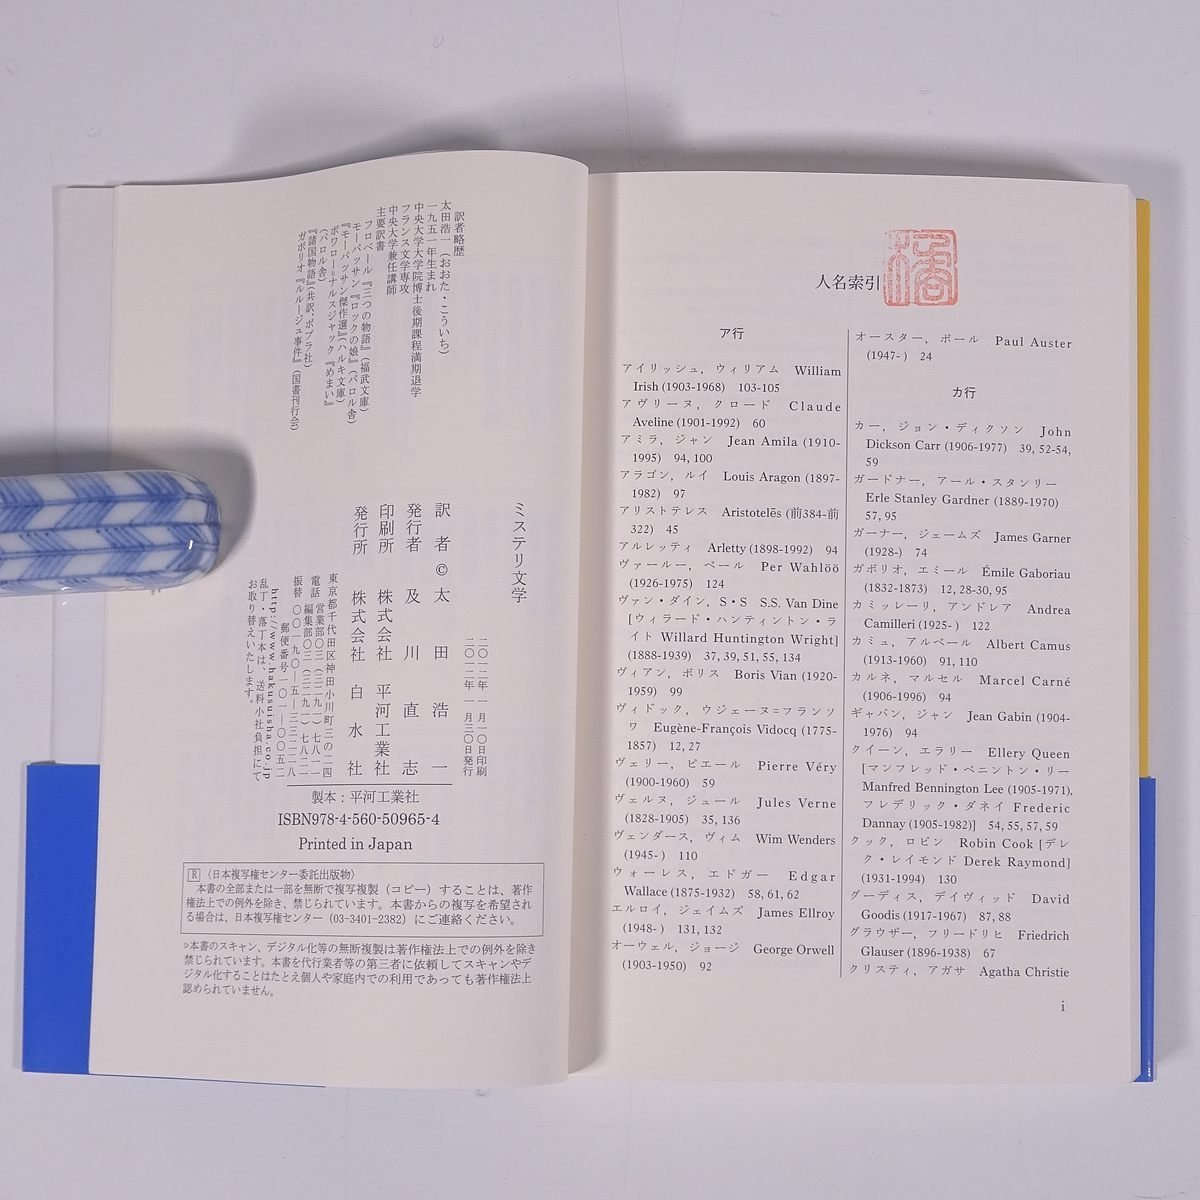 訳者略歴
太田浩一(おおた・こういち)
一九五一年生まれ
中央大学大学院博士後期課程満期退学
フランス文学専攻
中央大学兼任講師
主要訳書
フロベール『三つの物語』(福武文庫)
モーパッサン『ロックの娘』(パロル舎)
『モーパッサン傑作選』(ハルキ文庫)
ボワロー=ナルスジャック『めまい』
(パロル舎)
『諸国物語』(共訳、ポプラ社)
ガボリオ『ルルージュ事件』(国書刊行会)
ミステリ文学
二〇一二年 一月一〇日印刷
二〇一二年 一月三〇日発行
訳者 © 太田浩一
発行者 及川直志
印刷所 株式会社 平河工業社
発行所 株式会社 白水社
東京都千代田区神田小川町三の二四
電話 営業部〇三(三二九一)七八一一
編集部〇三(三二九一)七八二一
振替 〇〇一九〇-五-三三二二八
郵便番号一〇一-〇〇五二
http://www.hakusuisha.co.jp
乱丁・落丁本は、送料小社負担にて
お取り替えいたします。
製本:平河工業社
ISBN978-4-560-50965-4
Printed in Japan
R 〈日本複写権センター委託出版物〉
本書の全部または一部を無断で複写複製(コピー)することは、著作
権法上での例外を除き、禁じられています。本書からの複写を希望され
る場合は、日本複写権センター(03-3401-2382)にご連絡ください。
▷本書のスキャン、デジタル化等の無断複製は著作権法上での例外を除き
禁じられています。本書を代行業者等の第三者に依頼してスキャンやデ
ジタル化することはたとえ個人や家庭内での利用であっても著作権法上
認められていません。
人名索引
ア行
アイリッシュ,ウィリアム William
Irish (1903-1968) 103-105
アヴリーヌ,クロード Claude
Aveline (1901-1992) 60
アミラ,ジャン Jean Amila (1910-
1995) 94, 100
アラゴン,ルイ Louis Aragon (1897-
1982) 97
アリストテレス Aristotelēs (前384-前
322) 45
アルレッティ Arletty (1898-1992) 94
ヴァールー,ペール Per Wahlöö
(1926-1975) 124
ヴァン・ダイン,S・S S.S. Van Dine
[ウィラード・ハンティントン・ラ
イト Willard Huntington Wright]
(1888-1939) 37, 39, 51, 55, 134
ヴィアン,ボリス Boris Vian (1920-
1959) 99
ヴィドック,ウジェーヌ=フランソ
ワ Eugène-François Vidocq (1775-
1857) 12, 27
ヴェリー,ピエール Pierre Véry
(1900-1960) 59
ヴェルヌ,ジュール Jules Verne
(1828-1905) 35, 136
ヴェンダース,ヴィム Wim Wenders
(1945- ) 110
ウォーレス,エドガー Edgar
Wallace (1875-1932) 58, 61, 62
エルロイ,ジェイムズ James Ellroy
(1948- ) 131, 132
オーウェル,ジョージ George Orwell
(1903-1950) 92
オースター,ポール Paul Auster
(1947- ) 24
カ行
カー,ジョン・ディクソン John
Dickson Carr (1906-1977) 39, 52-54,
59
ガードナー,アール・スタンリー
Erle Stanley Gardner (1889-1970)
57, 95
ガーナー,ジェームズ James Garner
(1928-) 74
ガボリオ,エミール Émile Gaboriau
(1832-1873) 12, 28-30, 95
カミッレーリ,アンドレア Andrea
Camilleri (1925- ) 122
カミュ,アルベール Albert Camus
(1913-1960) 91, 110
カルネ,マルセル Marcel Carné
(1906-1996) 94
ギャバン,ジャン Jean Gabin (1904-
1976) 94
クイーン,エラリー Ellery Queen
[マンフレッド・ベニントン・リー
Manfred Bennington Lee (1905-1971),
フレデリック・ダネイ Frederic
Dannay (1905-1982)] 54, 55, 57, 59
クック,ロビン Robin Cook [デレ
ク・レイモンド Derek Raymond]
(1931-1994) 130
グーディス,デイヴィッド David
Goodis (1917-1967) 87, 88
グラウザー,フリードリヒ Friedrich
Glauser (1896-1938) 67
クリスティ,アガサ Agatha Christie
i